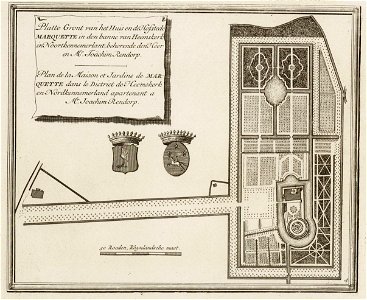 Platte Gront van het Huis en de Hofstede
MARQUETTE in den banne van Heemskerk
en Noortkennemerlant, behorende den Heer
en Mr. Joachim Rendorp.
Plan de la Maison et Jardins de MAR
QUETTE dans le District de Heemskerk
en Nordkennemerland apartenant a
Mr. Joachim Rendorp.
Rooden, Rhynlandsche maat